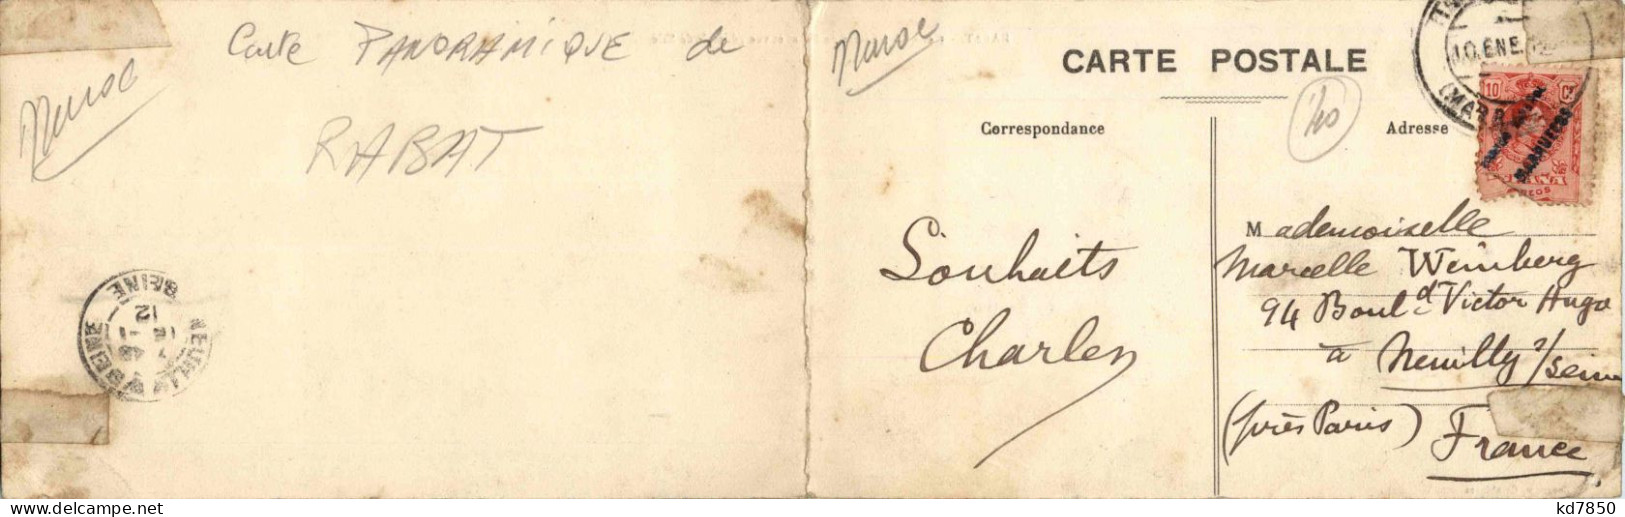 Carte PANORAMIQUE de
RABAT
Maroc
SEINE
12
NEUILLY
SEINE
Maroc
CARTE POSTALE
Correspondance
Adresse
40
10 ENE. 12
(MARR
10 Cs
MARRUECOS
Souhaits
Charles
Mademoiselle
Marcelle Weinberg
94 Boul.d Victor Hugo
à Neuilly s/Seine
(près Paris)
France
kd7850